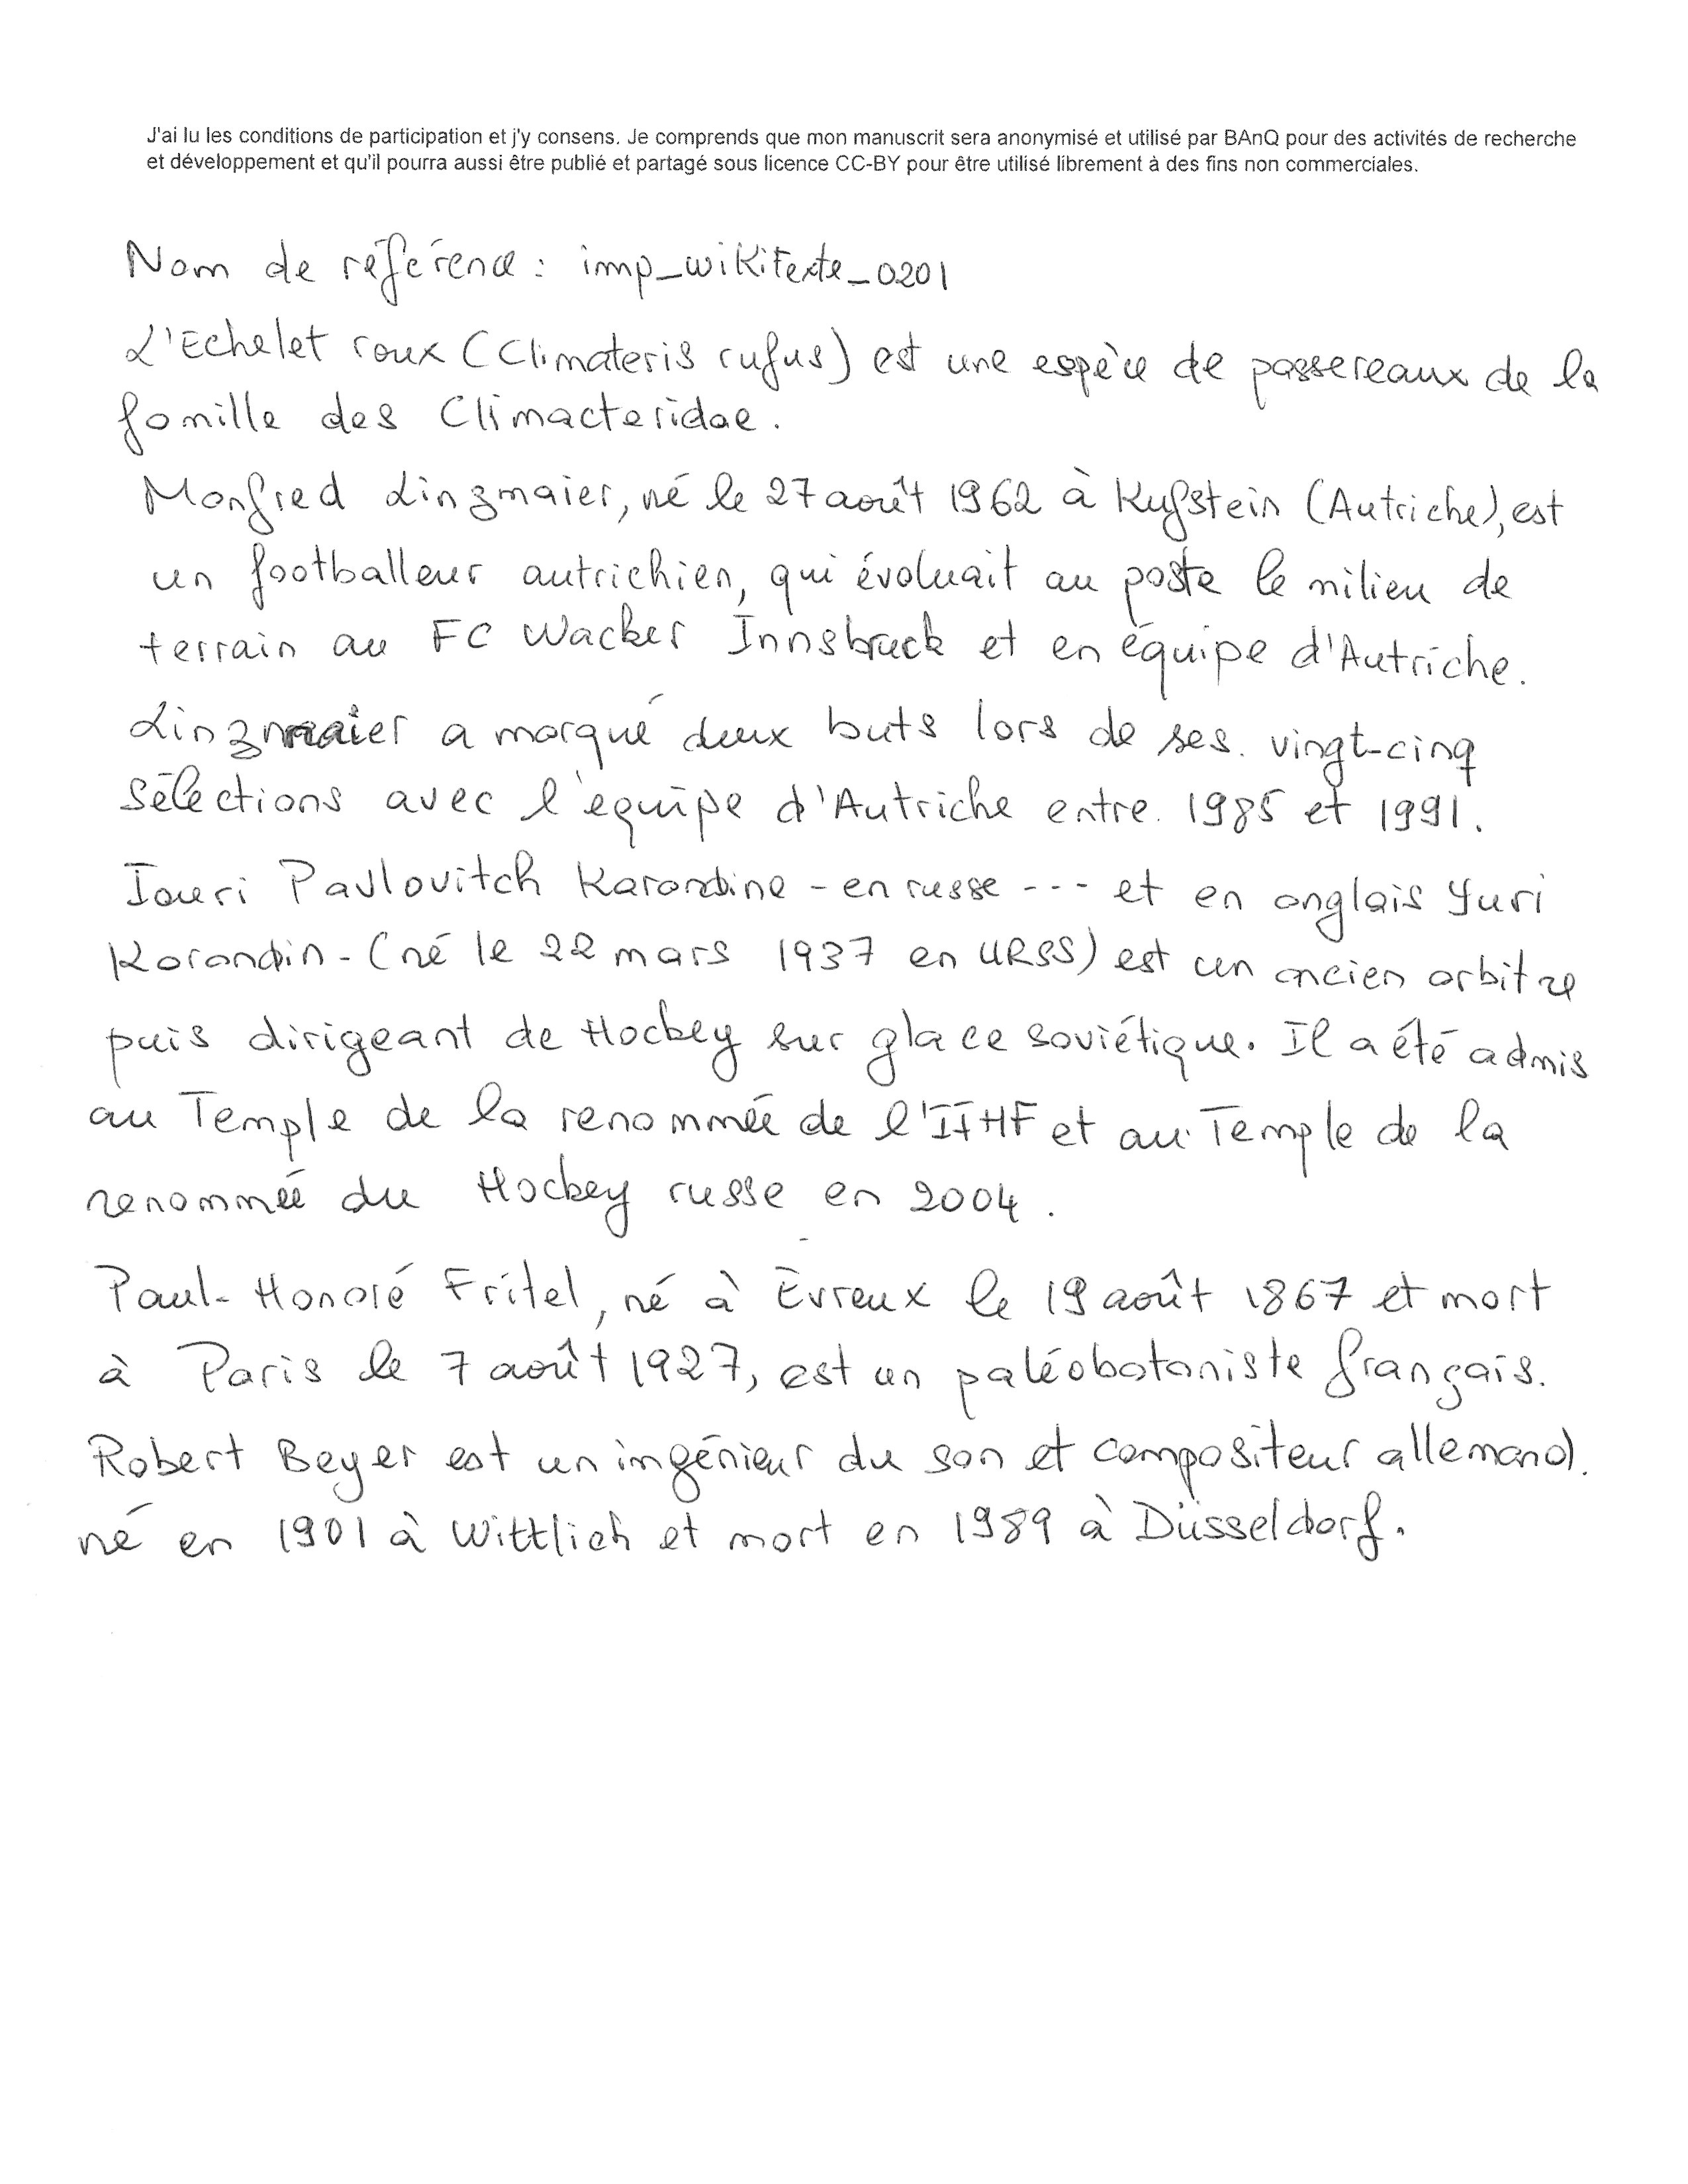 J'ai lu les conditions de participation et j'y consens. Je comprends que mon manuscrit sera anonymisé et utilisé par BAnQ pour des activités de recherche
et développement et qu'il pourra aussi être publié et partagé sous licence CC-BY pour être utilisé librement à des fins non commerciales.
Nom de référence : imp_wikitexte_0201
L'Echelet roux (Climateris rufus) est une espèce de passereaux de la
famille des Climacteridae.
Manfred Linzmaier, né le 27 août 1962 à Kufstein (Autriche), est
un footballeur autrichien, qui évoluait au poste le milieu de
terrain au FC Wacker Innsbruck et en équipe d'Autriche.
Linzmaier a marqué deux buts lors de ses vingt-cinq
sélections avec l'équipe d'Autriche entre 1985 et 1991.
Iouri Pavlovitch Karandine - en russe --- et en anglais Yuri
Karandin - (né le 22 mars 1937 en URSS) est un ancien arbitre
puis dirigeant de Hockey sur glace soviétique. Il a été admis
au Temple de la renommée de l'IIHF et au Temple de la
renommée du Hockey russe en 2004.
Paul-Honoré Fritel, né à Évreux le 19 août 1867 et mort
à Paris le 7 août 1927, est un paléobotaniste français.
Robert Beyer est un ingénieur du son et compositeur allemand.
né en 1901 à Wittlich et mort en 1989 à Düsseldorf.